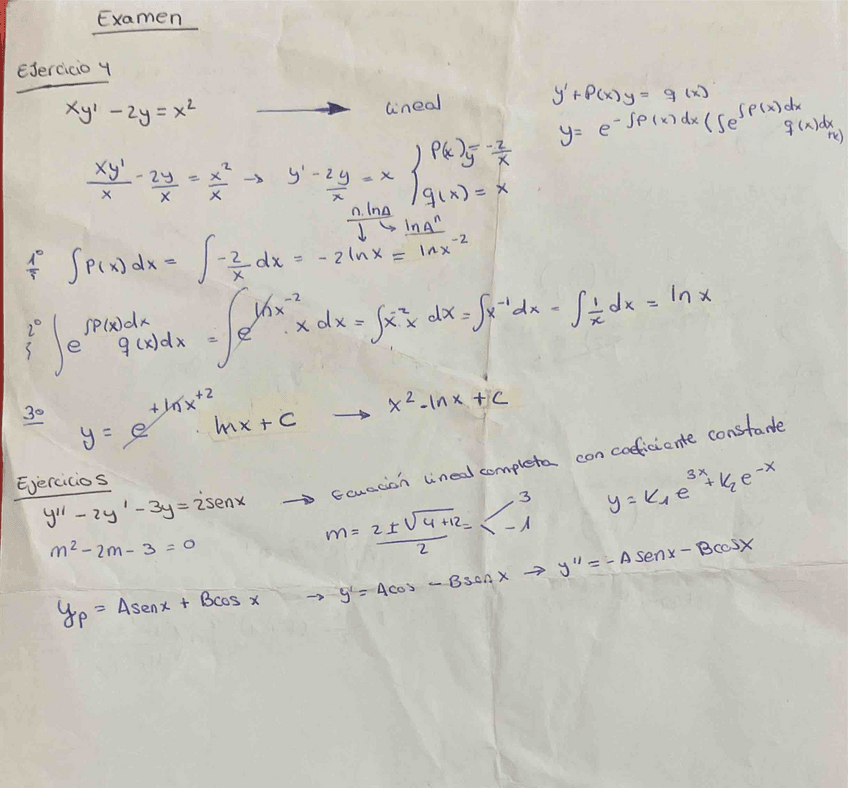 Examen
Ejercicio 4
xy' - 2y = x² → lineal
y' + P(x)y = q(x)
y = e^{-∫P(x)dx} (∫e^{∫P(x)dx} q(x)dx
xy'/x - 2y/x = x²/x → y' - 2y/x = x { P(x) = -2/x
q(x) = x
n·lnA
↓ ↳ lnAⁿ
1º ∫P(x)dx = ∫-2/x dx = -2lnx = lnx⁻²
2º ∫e^{∫P(x)dx} q(x)dx = ∫e^{lnx⁻²} · x dx = ∫x⁻²·x dx = ∫x⁻¹dx = ∫1/x dx = ln x
3º y = e^{+lnx⁺²} · lnx + C → x² · lnx + C
Ejercicio 5
y'' - 2y' - 3y = 2senx → Ecuación lineal completa con coeficiante constante
m² - 2m - 3 = 0 m = (2 ± √(4+12))/2 = < 3 -1 y = K₁e^{3x} + K₂e^{-x}
yₚ = Asenx + Bcos x → y' = Acos - Bsenx → y'' = -Asenx - Bcosx